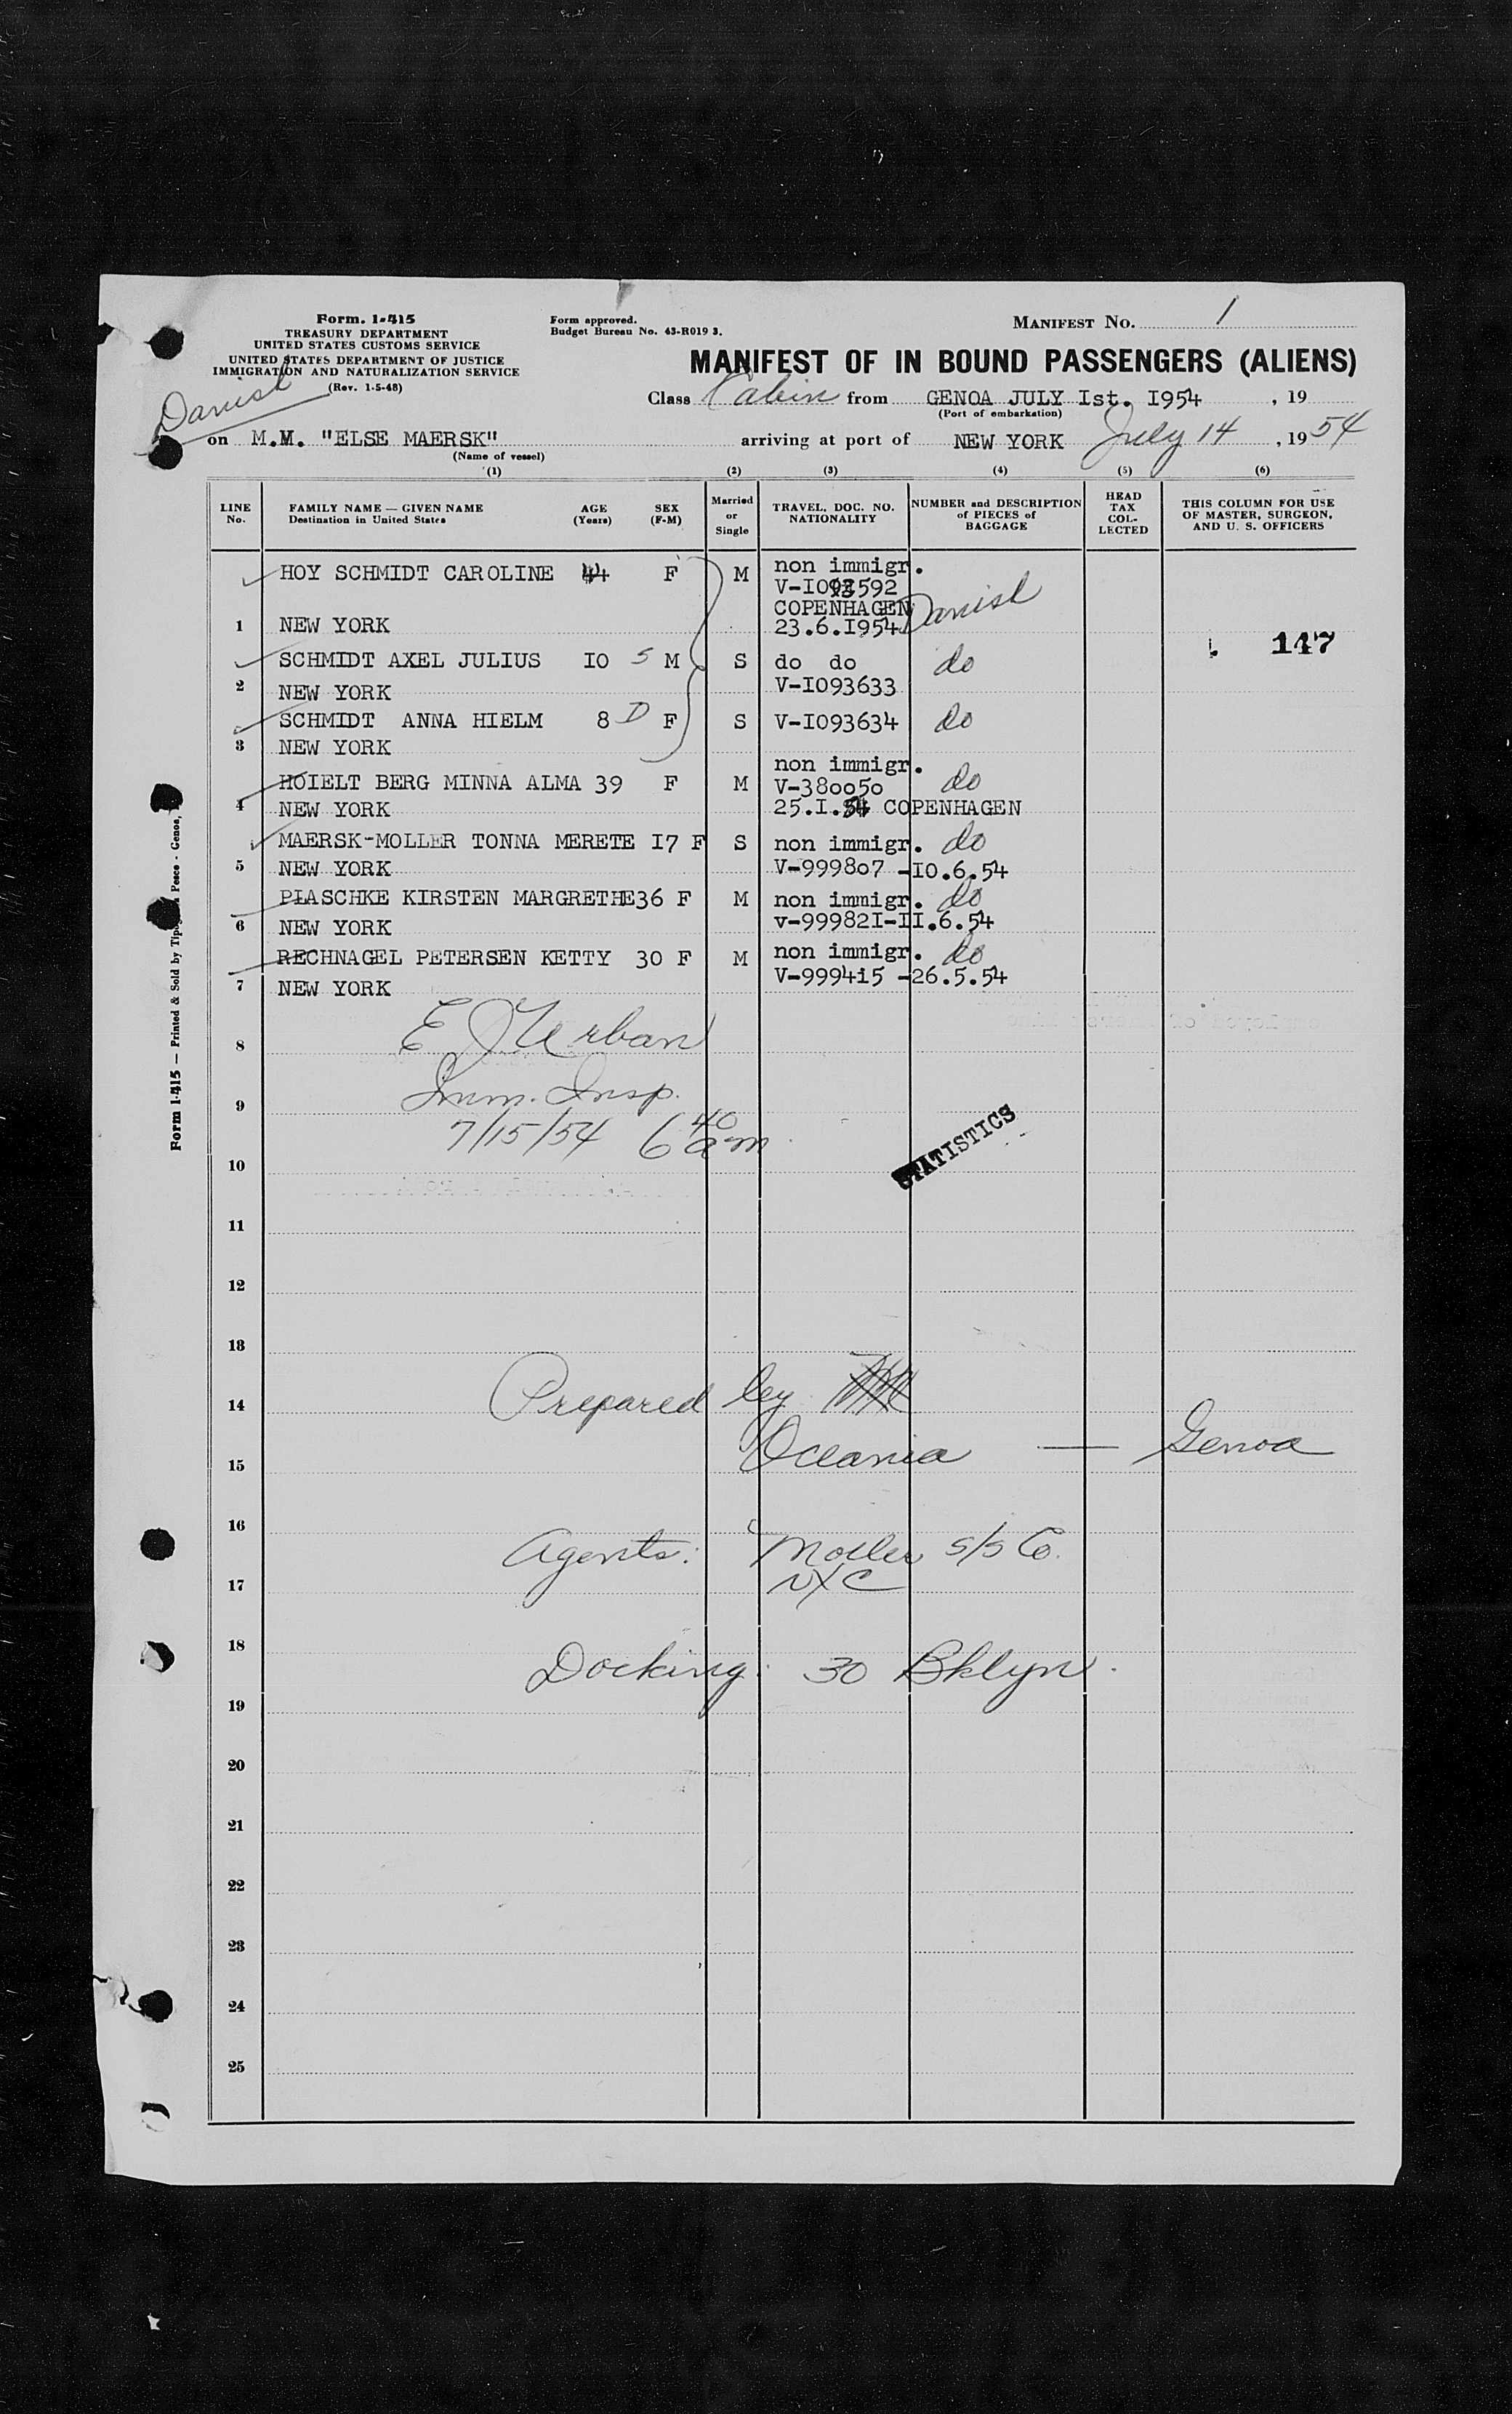 Form. 1-415
TREASURY DEPARTMENT
UNITED STATES CUSTOMS SERVICE
UNITED STATES DEPARTMENT OF JUSTICE
IMMIGRATION AND NATURALIZATION SERVICE
(Rev. 1-5-48)
Danish
Form approved.
Budget Bureau No. 43-R019 3.
MANIFEST No. 1
MANIFEST OF IN BOUND PASSENGERS (ALIENS)
Class Cabin from GENOA JULY Ist. I954 , 19
(Port of embarkation)
on M.V. "ELSE MAERSK" arriving at port of NEW YORK July 14 , 19 54
(Name of vessel)
(1) (2) (3) (4) (5) (6)
LINE No.
FAMILY NAME — GIVEN NAME AGE (Years) SEX (F-M)
Destination in United States
Married or Single
TRAVEL. DOC. NO. NATIONALITY
NUMBER and DESCRIPTION of PIECES of BAGGAGE
HEAD TAX COLLECTED
THIS COLUMN FOR USE OF MASTER, SURGEON, AND U. S. OFFICERS
HOY SCHMIDT CAROLINE 44 F M non immigr.
V-I093592
COPENHAGEN Danish
1 NEW YORK 23.6.I954
147
SCHMIDT AXEL JULIUS IO S M S do do do
2 NEW YORK V-I093633
SCHMIDT ANNA HIELM 8 D F S V-I093634 do
3 NEW YORK
non immigr.
HOIELT BERG MINNA ALMA 39 F M V-380050 do
4 NEW YORK 25.I.54 COPENHAGEN
MAERSK-MOLLER TONNA MERETE I7 F S non immigr. do
5 NEW YORK V-999807 -IO.6.54
PLASCHKE KIRSTEN MARGRETHE 36 F M non immigr. do
6 NEW YORK v-99982I-II.6.54
RECHNAGEL PETERSEN KETTY 30 F M non immigr. do
7 NEW YORK V-999415 -26.5.54
8 E J Urban
9 Imm. Insp.
7/15/54 6 40 am
STATISTICS
10
11
12
13
14 Prepared by
15 Oceania — Genoa
16
Agents: Moller S/S Co.
17 NYC
18
Docking: 30 Bklyn.
19
20
21
22
23
24
25
Form 1-415 — Printed & Sold by Tipo Pesce - Genoa,